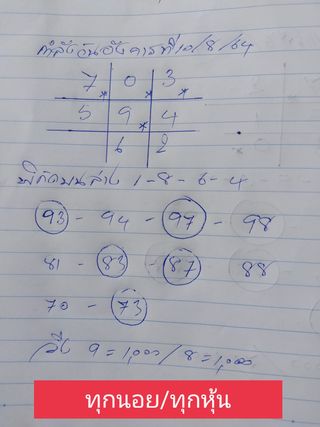 กำลังวันอังคารที่ 10/8/64
7 0 3
5 9 4
6 2
พิกัดบนล่าง 1-8-6-4
93 - 94 - 97 - 98
81 - 83 - 87 88
70 - 73
วิ่ง 9 = 1,000 / 8 = 1,000
ทุกนอย/ทุกหุ้น